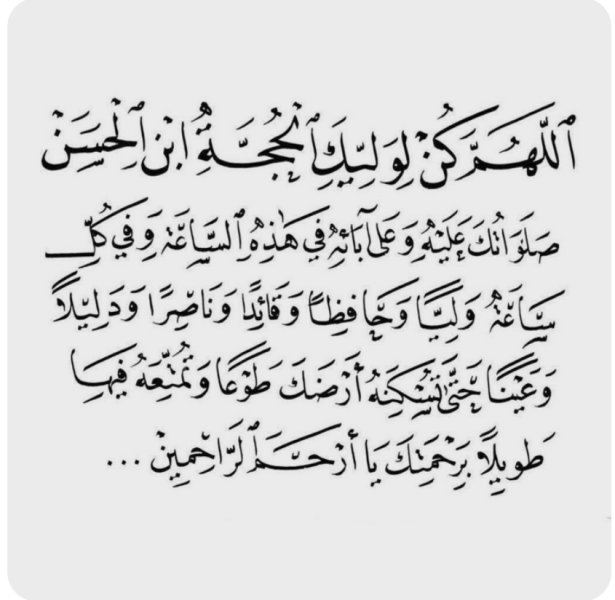 ٱللَّهُمَّ كُنْ لِوَلِيِّكَ ٱلْحُجَّةِ ابْنِ ٱلْحَسَنِ
صَلَوَاتُكَ عَلَيْهِ وَعَلَى آبَائِهِ فِي هَٰذِهِ ٱلسَّاعَةِ وَفِي كُلِّ
سَاعَةٍ وَلِيًّا وَحَافِظًا وَقَائِدًا وَنَاصِرًا وَدَلِيلًا
وَعَيْنًا حَتَّى تُسْكِنَهُ أَرْضَكَ طَوْعًا وَتُمَتِّعَهُ فِيهَا
طَوِيلًا بِرَحْمَتِكَ يَا أَرْحَمَ ٱلرَّاحِمِينَ ...